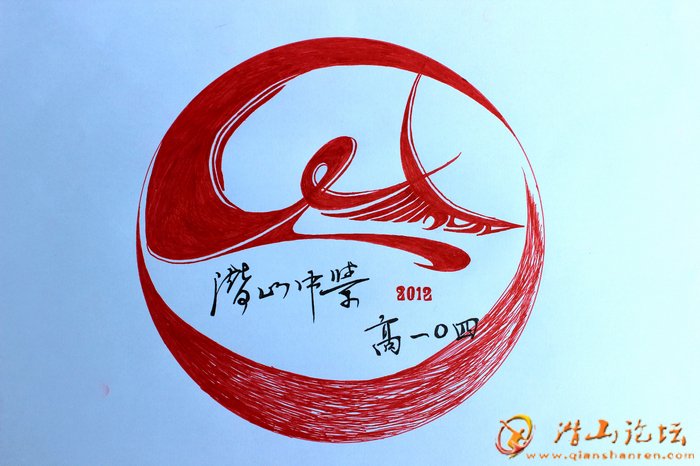 潜山中学
2012
高一〇四
潜山论坛
www.qianshanren.com